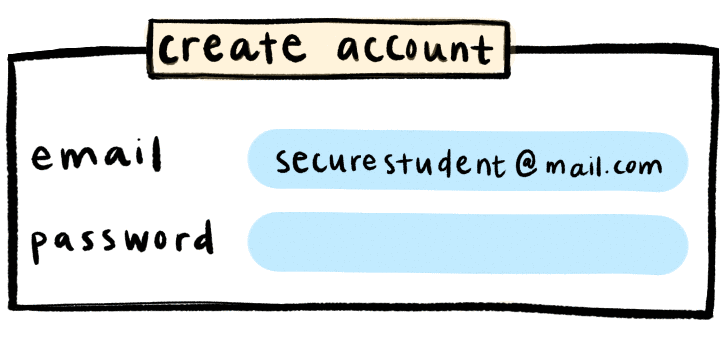 create account
email securestudent@mail.com
password